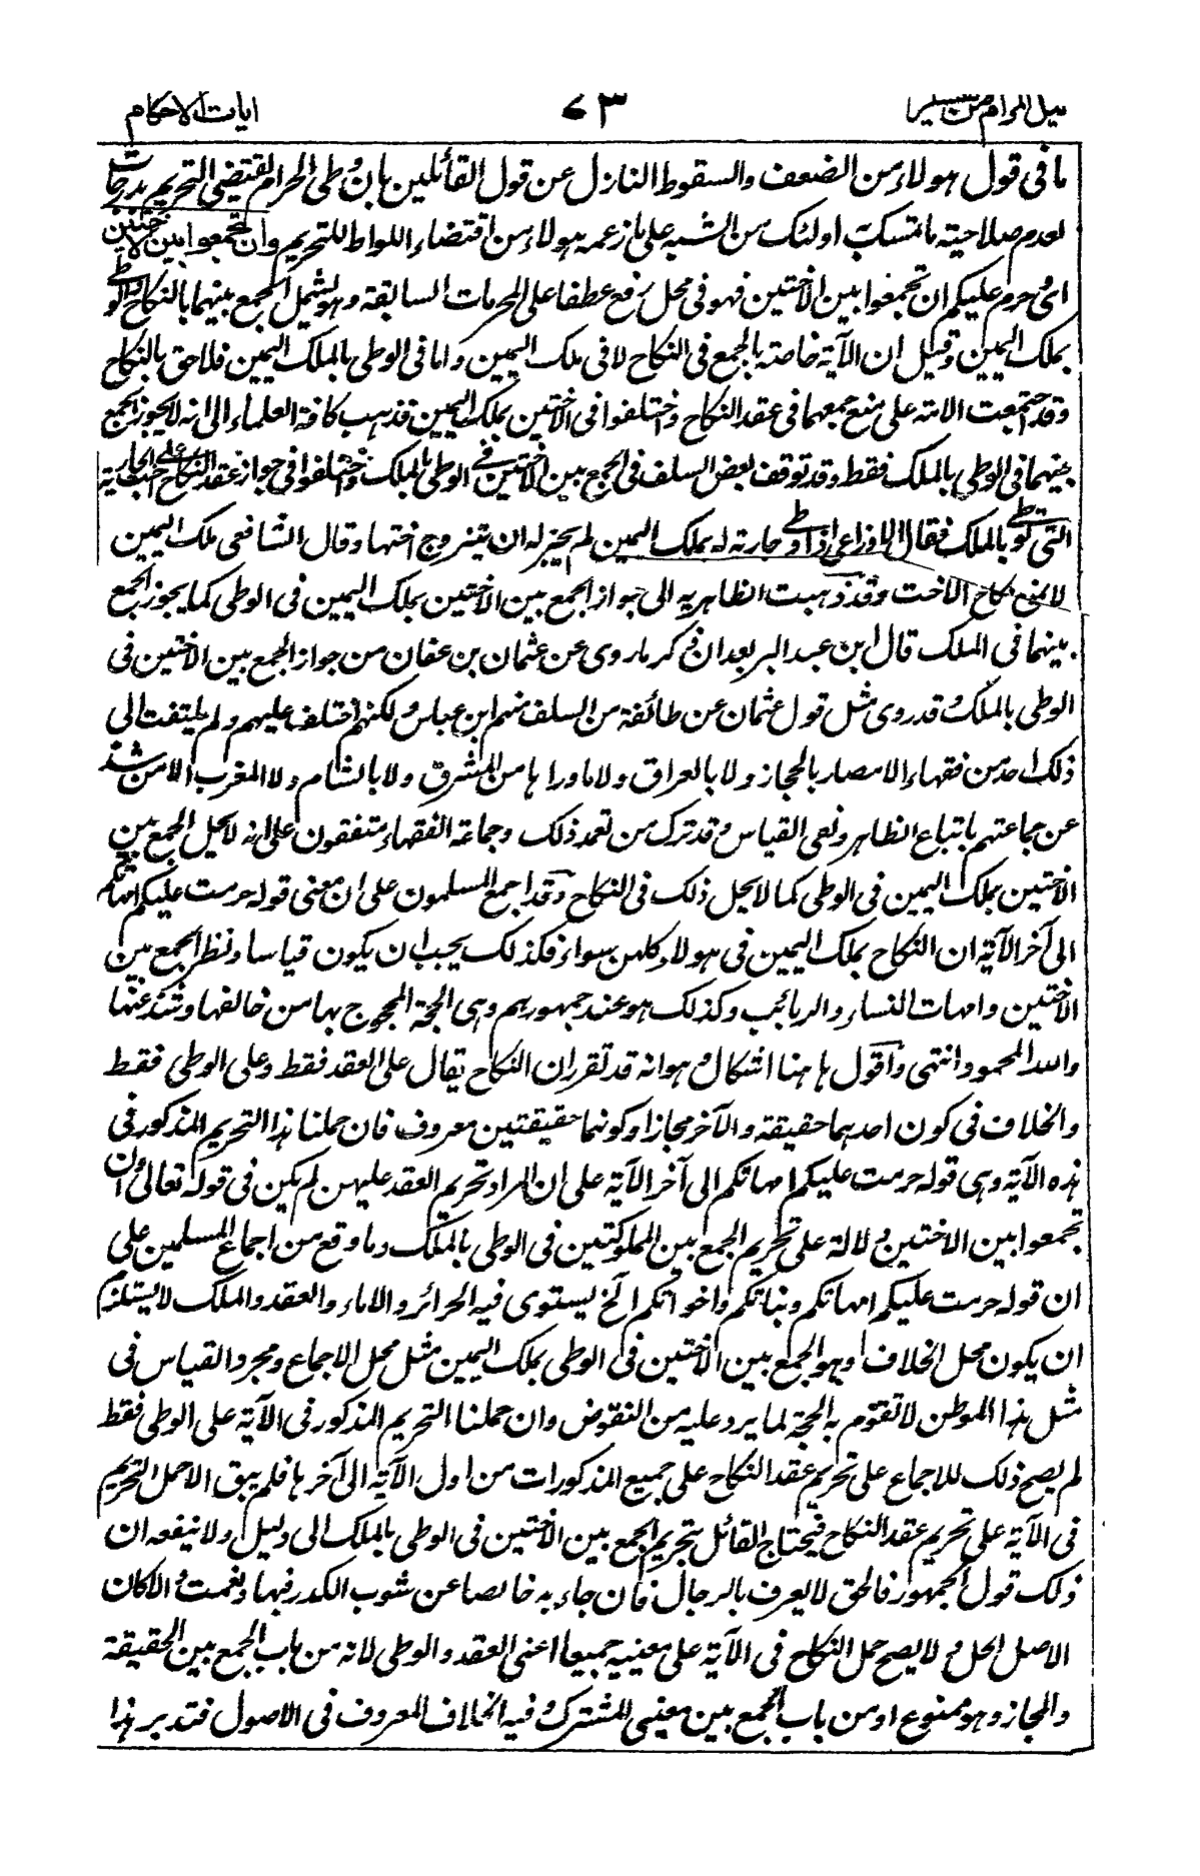 نيل المرام من تفسير ٧٣ ايات الاحكام
ما فى قول هولاء من الضعف والسقوط النازل عن قول القائلين بان وطى الحرام يقتضى التحريم بدرجات
لعدم صلاحيته ما تمسك به اولئك من الشبه على ما زعمه هولاء من اقتضاء اللواط للتحريم وان تجمعوا بين الاختين
اى وحرم عليكم ان تجمعوا بين الاختين فهو فى محل رفع عطفا على المحرمات السابقة وهو يشمل الجمع بينهما بالنكاح والوطى
بملك اليمين وقيل ان الآية خاصة بالجمع فى النكاح لا فى ملك اليمين واما فى الوطى بالملك اليمين فلاحق بالنكاح
وقد اجتمعت الامة على منع جمعهما فى عقد النكاح واختلفوا فى الاختين بملك اليمين فذهب كافة العلماء الى انه لا يجوز الجمع
بينهما فى الوطى بالملك فقط وقد توقف بعض السلف فى الجمع بين الاختين فى الوطى بالملك واختلفوا فى جواز عقد النكاح على اخت الجارية
التى توطى بالملك فقال الاوزاعى اذا وطى جارية له بملك اليمين لم يجز له ان يتزوج اختها وقال الشافعى ملك اليمين
لا يمنع نكاح الاخت وقد ذهبت الظاهرية الى جواز الجمع بين الاختين بملك اليمين فى الوطى كما يجوز الجمع
بينهما فى الملك قال ابن عبد البر بعد ان ذكر ما روى عن عثمان بن عفان من جواز الجمع بين الاختين فى
الوطى بالملك وقد روى مثل قول عثمان عن طائفة من السلف منهم ابن عباس ولكنهم اختلف عليهم ولم يلتفت الى
ذلك احد من فقهاء الامصار بالحجاز ولا بالعراق ولا ما وراءها من المشرق ولا بالشام ولا المغرب الا من شذ
عن جماعتهم باتباع الظاهر ونفى القياس وقد ترك من تعمد ذلك وجماعة الفقهاء متفقون على انه لا يحل الجمع بين
الاختين بملك اليمين فى الوطى كما لا يحل ذلك فى النكاح وقد اجمع المسلمون على ان معنى قوله حرمت عليكم امهاتكم
الى آخر الآية ان النكاح بملك اليمين فى هولاء كلهن سواء فكذلك يجب ان يكون قياسا ونظر الجمع بين
الاختين وامهات النساء والربائب وكذلك هو عند جمهورهم وهى الحجة المحجوج بها من خالفها وشذ عنها
والله المحمود انتهى واقول ها هنا اشكال وهو انه قد تقرر ان النكاح يقال على العقد فقط وعلى الوطى فقط
والخلاف فى كون احدهما حقيقة والآخر مجازا وكونهما حقيقتين معروف فان حملنا هذا التحريم المذكور فى
هذه الآية وهى قوله حرمت عليكم امهاتكم الى آخر الآية على ان المراد تحريم العقد عليهن لم يكن فى قوله تعالى وان
تجمعوا بين الاختين دلالة على تحريم الجمع بين المملوكتين فى الوطى بالملك وما وقع من اجماع المسلمين على
ان قوله حرمت عليكم امهاتكم وبناتكم واخواتكم الخ يستوى فيه الحرائر والاماء والعقد والملك لا يستلزم
ان يكون محل الخلاف وهو الجمع بين الاختين فى الوطى بملك اليمين مثل محل الاجماع ومجرد القياس فى
مثل هذا الموطن لا تقوم به الحجة لما يرد عليه من النقوض وان حملنا التحريم المذكور فى الآية على الوطى فقط
لم يصح ذلك للاجماع على تحريم عقد النكاح على جميع المذكورات من اول الآية الى آخرها فلم يبق الا حمل التحريم
فى الآية على تحريم عقد النكاح فيحتاج القائل بتحريم الجمع بين الاختين فى الوطى بالملك الى دليل ولا ينفعه ان
ذلك قول الجمهور فالحق لا يعرف بالرجال فان جاء به خالصا عن شوب الكدر فبها ونعمت والا كان
الاصل الحل ولا يصح حمل النكاح فى الآية على معنييه جميعا اعنى العقد والوطى لانه من باب الجمع بين الحقيقة
والمجاز وهو ممنوع او من باب الجمع بين معنيى المشترك وفيه الخلاف المعروف فى الاصول فتدبر هذا